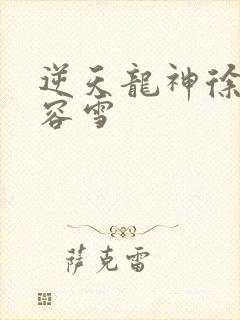 逆天龍神徐
容雪
薩克雷